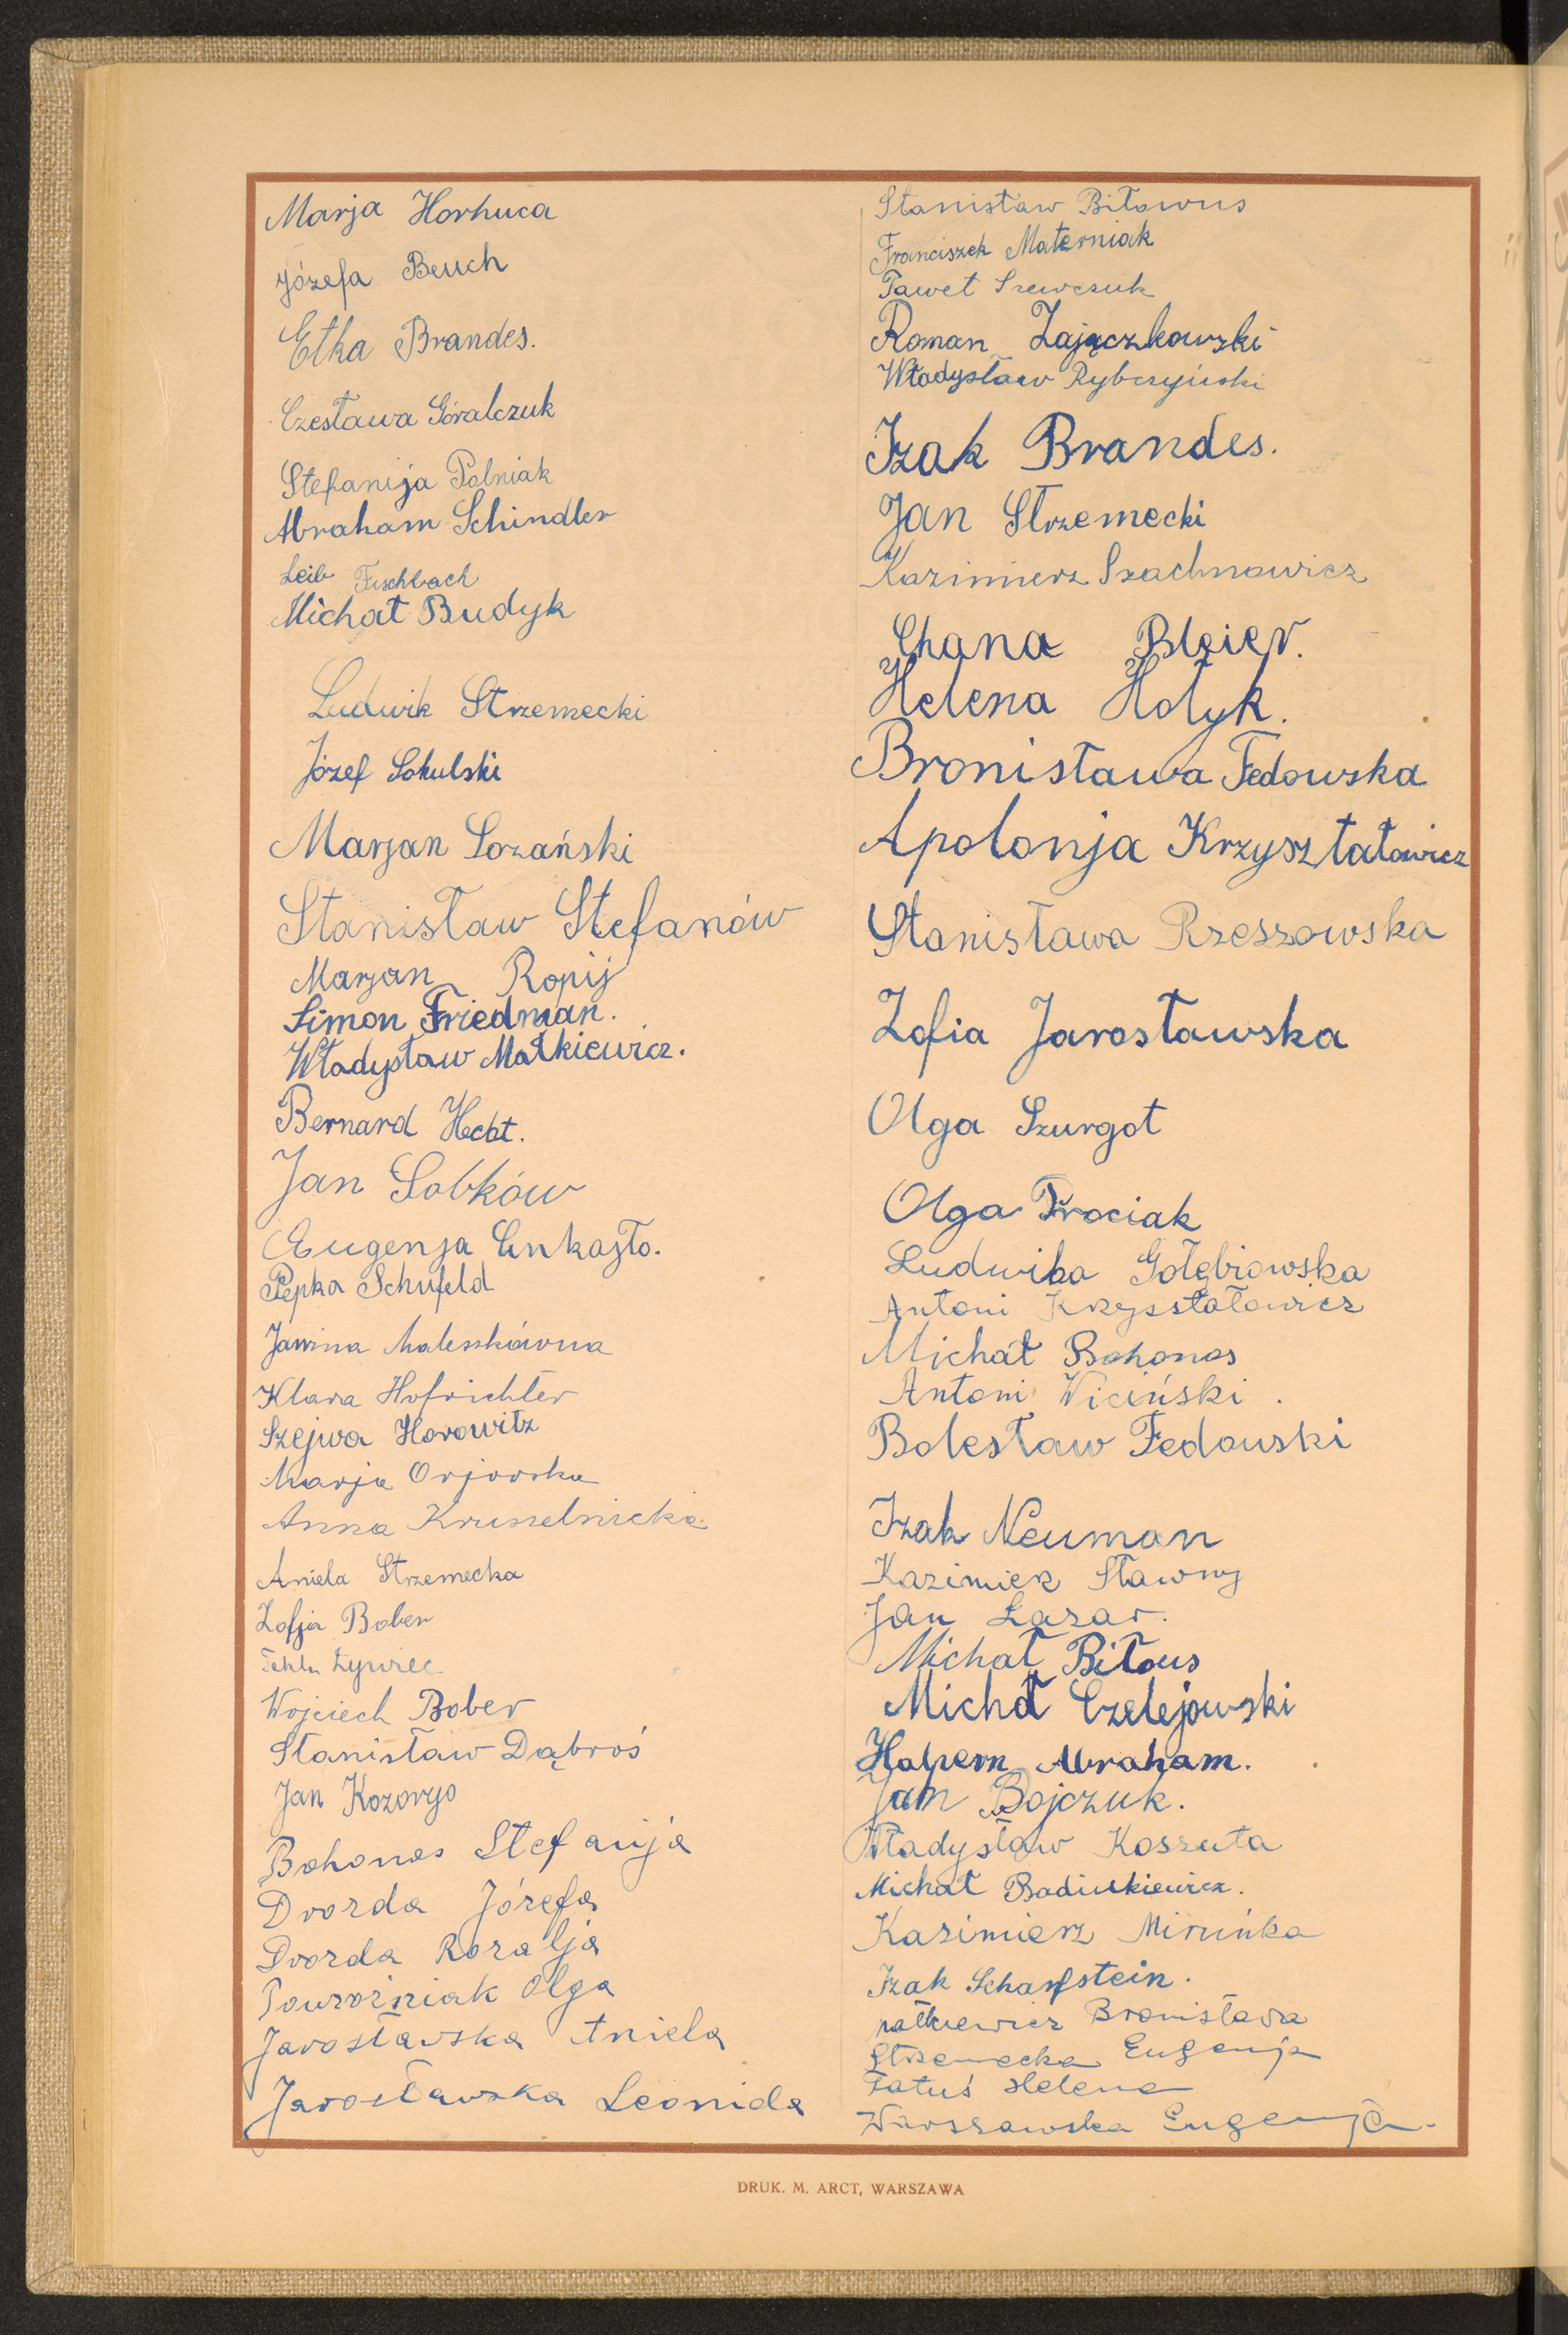 Marja Horhuca
Józefa Beuch
Etka Brandes.
Czesława Góralczuk
Stefanija Polniak
Abraham Schindler
Leib Fischbach
Michał Budyk
Ludwik Strzemecki
Józef Sokulski
Marjan Lozański
Stanisław Stefanów
Marjan Ropij
Simon Friedman.
Władysław Małkiewicz.
Bernard Hecht.
Jan Sobków
Eugenja
Pepka Schufeld
Janina Maleszkówna
Klara Hofrichter
Szejwa Horowitz
Marja
Anna Kruszelnicka
Aniela Strzemecka
Zofja Bober
Tekla Żywiec
Wojciech Bober
Stanisław Dąbroś
Jan Kozoryo
Bohonos Stefanija
Dvorda Józefa
Dvorda Rozalja
Powroźniak Olga
Jarosławska Aniela
Jarosławska Leonida
Stanisław Biłowus
Franciszek Materniak
Paweł Szewczuk
Roman Zajączkowski
Władysław Rybczyński
Izak Brandes.
Jan Strzemecki
Kazimierz Szachnowicz
Chana Bleier.
Helena Hołyk.
Bronisława Fedowska
Apolonja Krzyształowicz
Stanisława Rzeszowska
Zofia Jarosławska
Olga Szurgot
Olga Trociak
Ludwika Gołębiowska
Antoni Krzyształowicz
Michał Bohonos
Antoni Wiciński.
Bolesław Fedowski
Izak Neuman
Kazimierz Sławny
Jan Łazar.
Michał Biłous
Michał Czelejowski
Halpern Abraham.
Jan Bojczuk.
Władysław Koszuta
Michał Badiukiewicz.
Kazimierz Miruńka
Izak Scharfstein.
Małkiewicz Bronisława
Strzemecka Eugenja
Fatuś Helena
Warszawska Eugenja.
DRUK. M. ARCT, WARSZAWA